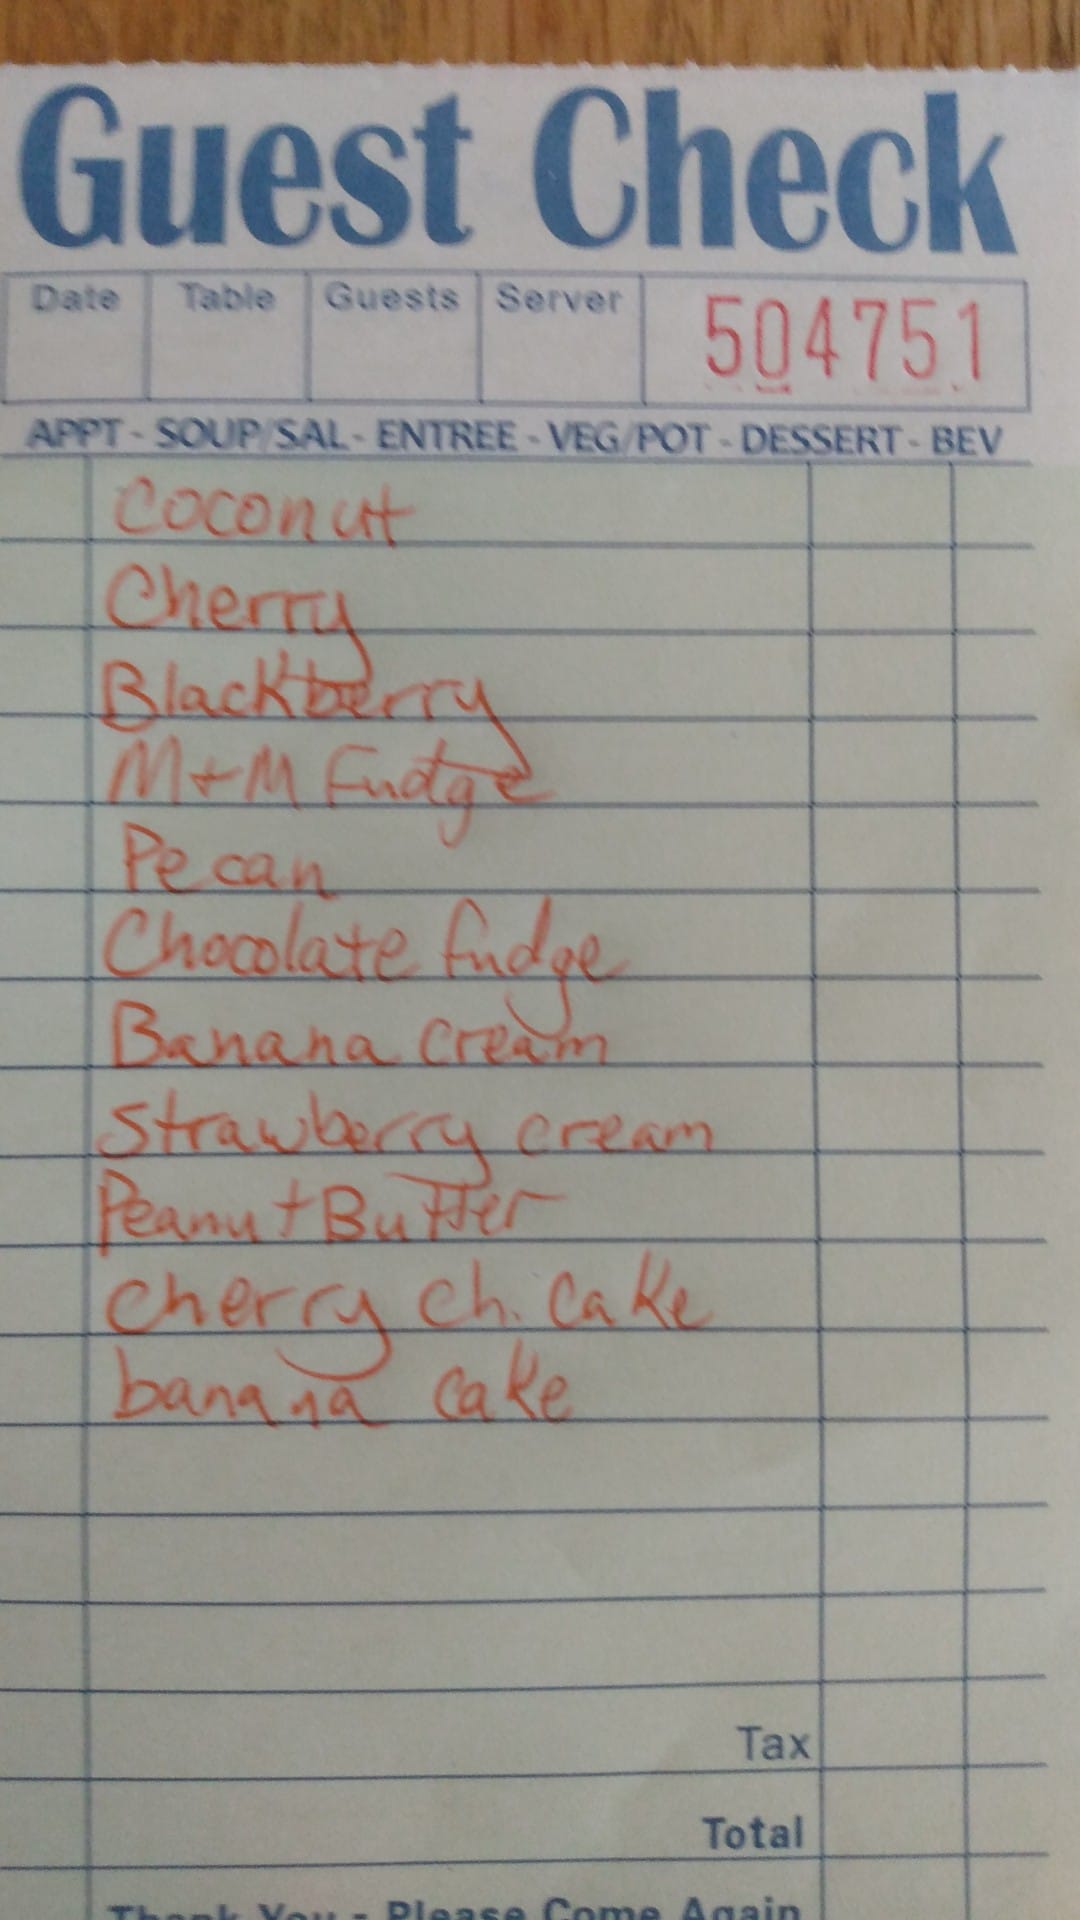 Guest Check
Date Table Guests Server 504751
APPT - SOUP/SAL - ENTREE - VEG/POT - DESSERT - BEV
Coconut
Cherry
Blackberry
M+M Fudge
Pecan
Chocolate fudge
Banana cream
Strawberry cream
Peanut Butter
cherry ch. cake
banana cake
Tax
Total
Thank You - Please Come Again